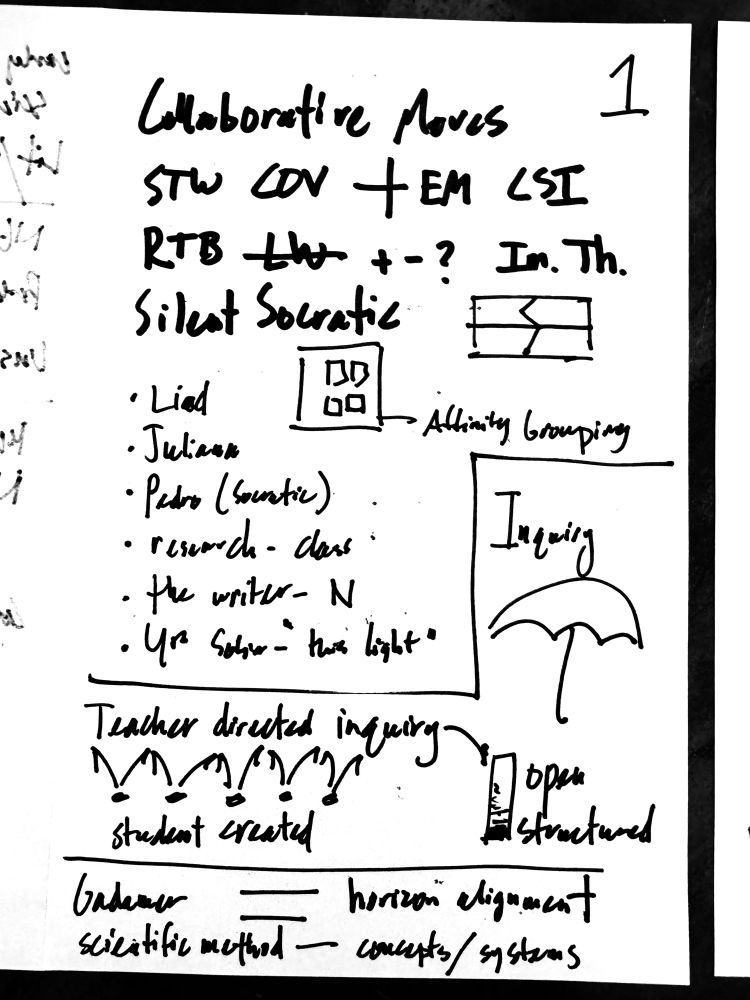 1
Collaborative Moves
STW COV + EM CSI
RTB LW + - ? In. Th.
Silent Socratic
Affinity Grouping
• Liad
• Juliana
• Pedro (Socratic)
• research - class
• the writer - N
• "this light"
Inquiry
Teacher directed inquiry
student created
open
structured
Gadamer = horizon alignment
scientific method — concepts/systems